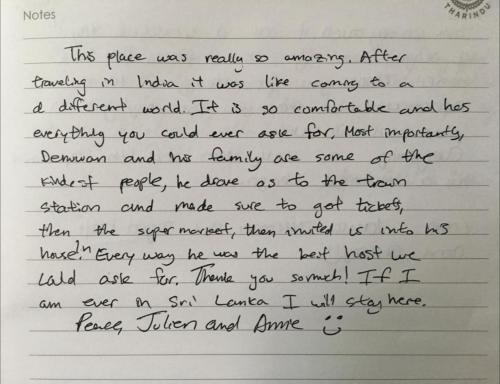 THARINDU
Notes
This place was really so amazing. After
traveling in India it was like coming to a
d different world. It is so comfortable and has
everything you could ever ask for. Most importantly,
and his family are some of the
kindest people, he drove us to the train
station and made sure to get tickets,
then the super market, then invited is into his
house. In Every way he was the best host we
could ask for. Thank you so much! If I
am ever in Sri Lanka I will stay here.
Peace, Julien and Annie